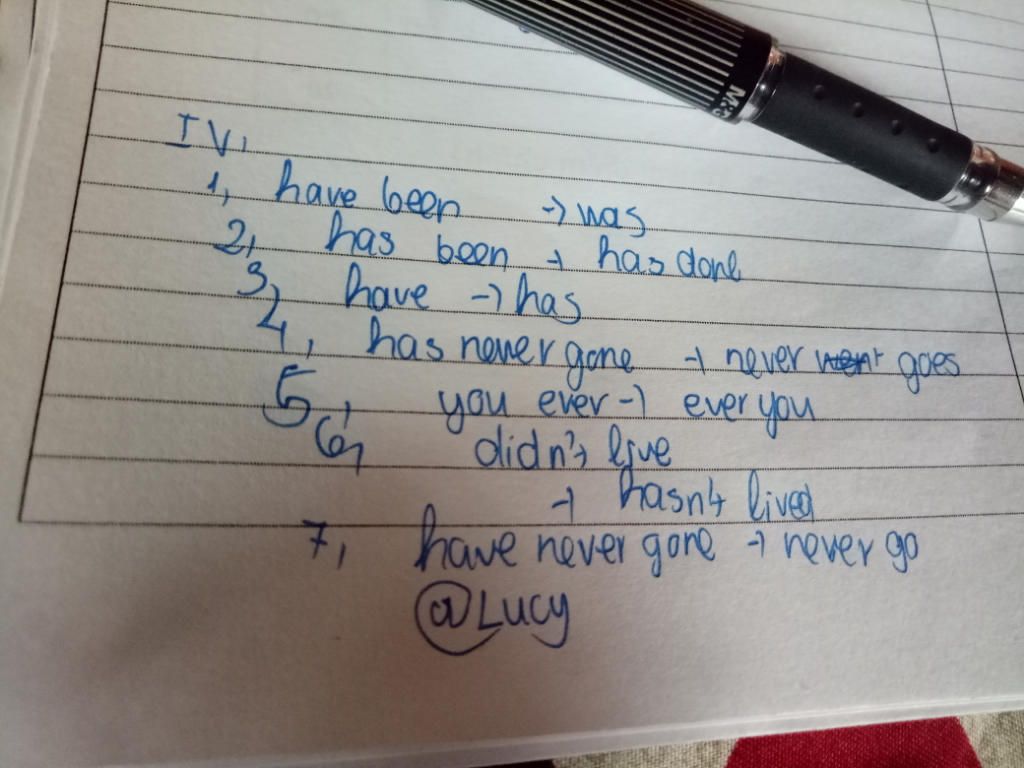 IV,
1, have been → was
2, has been → has done
3, have → has
4, has never gone → never went goes
5, you ever → ever you
6, didn't live
→ hasn't lived
7, have never gone → never go
@Lucy